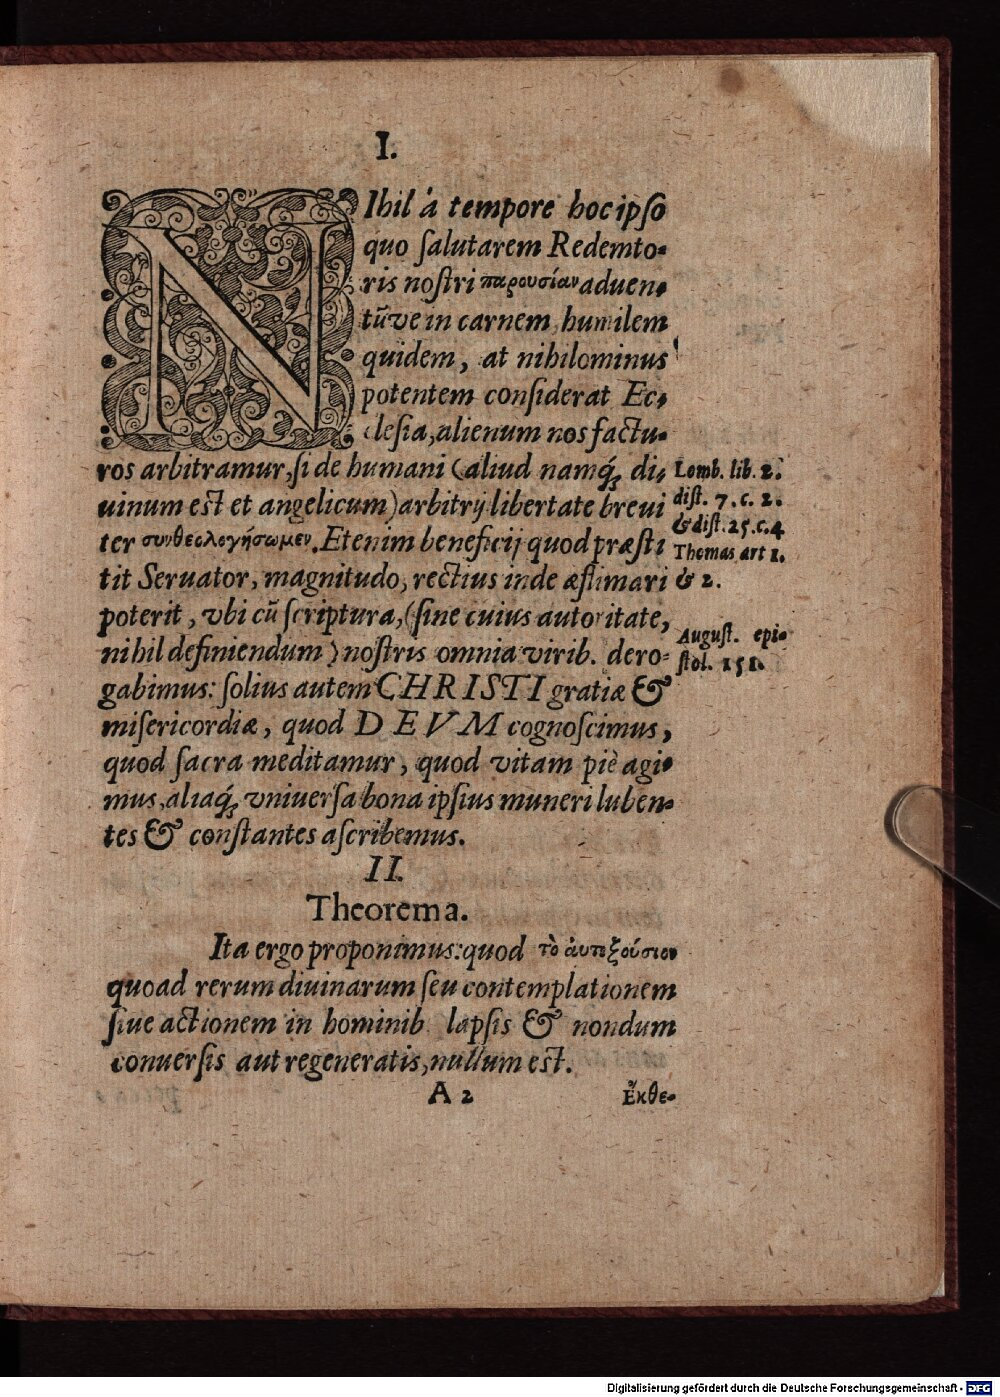 I.
NIhil à tempore hoc ipſo
quo ſalutarem Redemto-
ris noſtri παρουσίαν aduen-
tũve in carnem humilem
quidem, at nihilominus
potentem conſiderat Ec-
cleſia, alienum nos factu-
ros arbitramur, ſi de humani (aliud namq́; di-
uinum eſt et angelicum) arbitrij libertate breui
ter συνθεολογήσωμεν. Etenim beneficij quod præſti
tit Seruator, magnitudo, rectius inde æſtimari
poterit, vbi cũ ſcriptura, (ſine cuius autoritate,
nihil definiendum) noſtris omnia virib. dero-
gabimus: ſolius autem CHRISTI gratiæ &
miſericordiæ, quod DEVM cognoſcimus,
quod ſacra meditamur, quod vitam piè agi-
mus, aliaq́; vniuerſa bona ipſius muneri luben-
tes & conſtantes aſcribemus.
Lomb. lib. 2.
diſt. 7. c. 2.
& diſt. 25. c. 4
Thomas art 1.
& 2.
Auguſt. epi-
ſtol. 151.
II.
Theorema.
Ita ergo proponimus: quod τὸ ἀυτεξούσιον
quoad rerum diuinarum ſeu contemplationem
ſiue actionem in hominib. lapſis & nondum
conuerſis aut regeneratis, nullum eſt.
A 2 Ἔκθε-
Digitalisierung gefördert durch die Deutsche Forschungsgemeinschaft - DFG